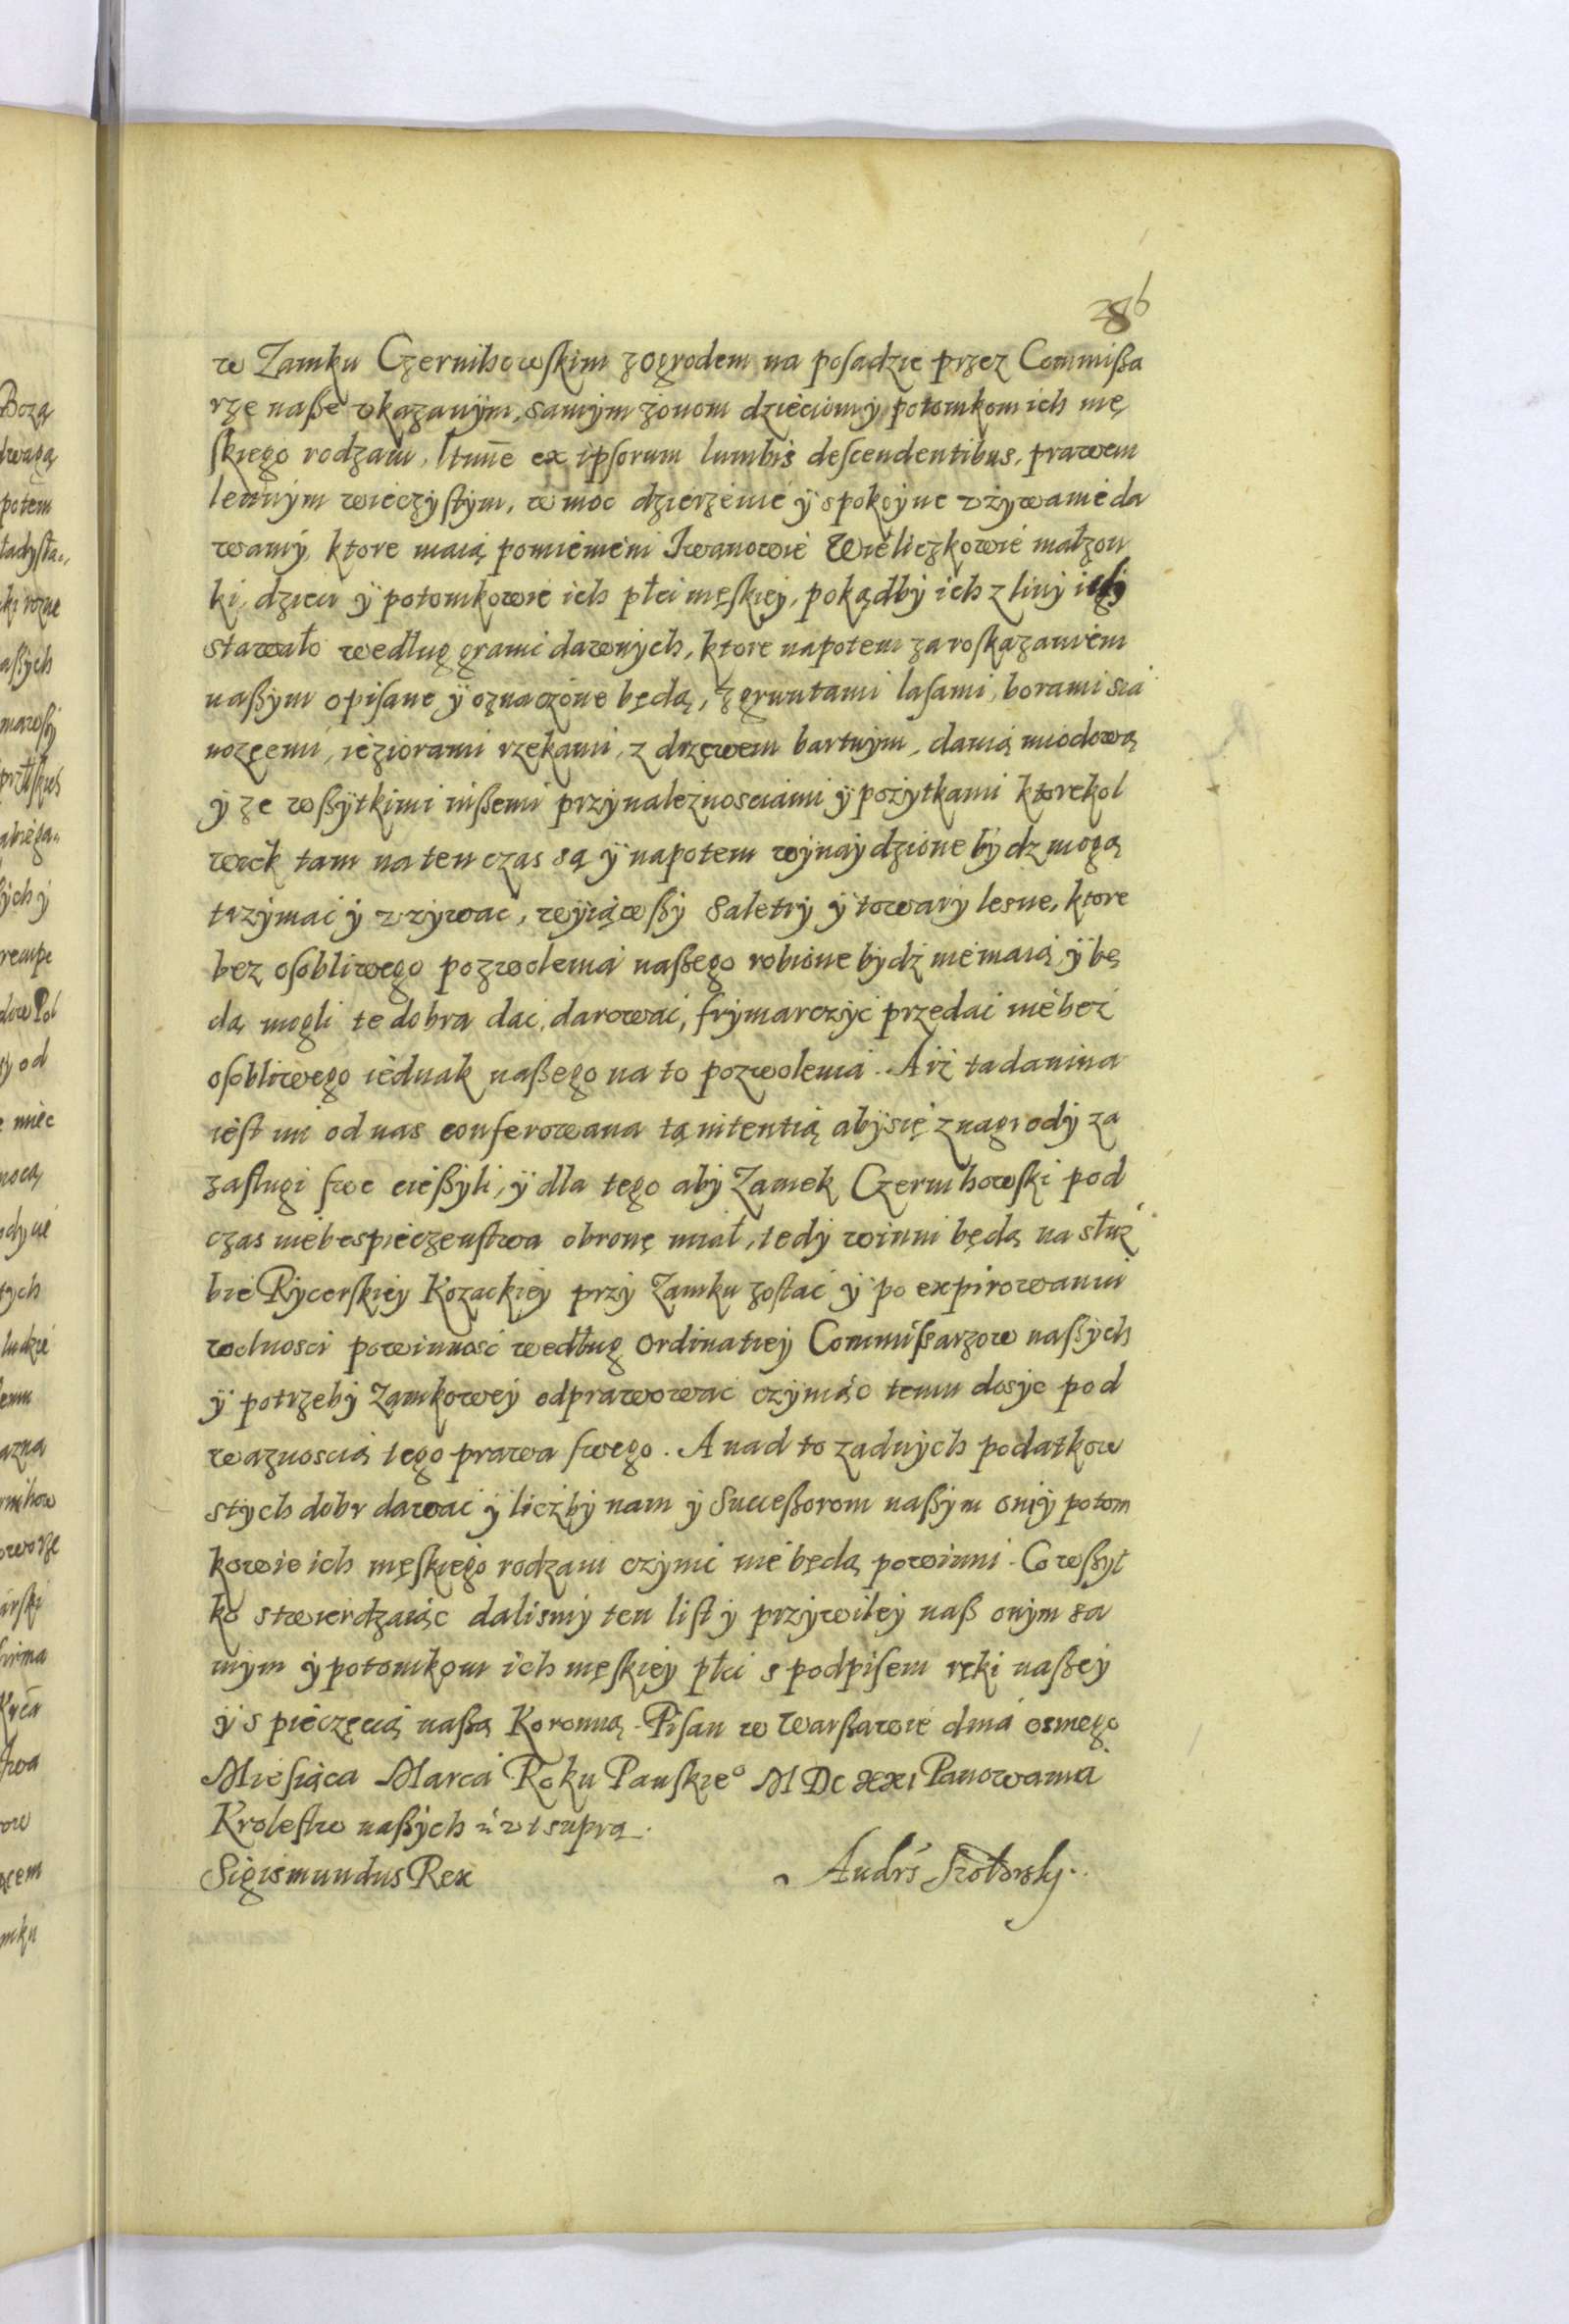 286
w Zamku Czernihowskim z ogrodem na posadzie przez Commißa
rze naße vkazanÿm, samÿm żonom dzieciomÿ potomkom ich mę
skiego rodzaiu, ltimē ex ipsorum lumbis descendentibus, prawem
lennÿm wieczystÿm, w moc dzierżenié ÿ spokoÿne vżÿwanié da
wamÿ, ktore maią pomienieni Iwanowié Wieliczkowié małżon
ki, dzieci ÿ potomkowie ich płci męskiey, pokądbÿ ich z liniÿ
stawało według granic dawnÿch, ktore napotem za roskazaniem
naßÿm opisane ÿ oznaczone będą, z gruntami lasami, borami sia
nożęćmi, ieziorami rzekami, z drzewem bartnÿm, danią miodową
ÿ ze wßÿtkimi inßemi przÿnależnosciami ÿ pożÿtkami ktorekol
wiek tam na ten czas są ÿ napotem wÿnaÿdzione bÿdz mogą
trzÿmać ÿ vżÿwać, wÿiąwßÿ Saletrÿ ÿ towarÿ lesne, ktore
bez osobliwego pozwolenia naßego robione bÿdź nie maią, ÿ bę
dą mogli te dobra dać, darować, frÿmarczÿć przedać nié bez
osobliwego iednak naßego na to pozwolenia. A iż ta danina
iest im od nas conferowana tą intentią abÿ się z nagrodÿ za
zasługi swe cießÿli, ÿ dla tego abÿ Zamek Czernihowski pod
czas niebespieczenstwa obronę miał, tedÿ winni będą na służ
bie Rÿcerskiéÿ Kozackiéÿ przÿ Zamku zostać ÿ po expirowaniu
wolnosci powinność według ordinatieÿ Commißarzow naßÿch
ÿ potrzebÿ Zamkowéÿ odprawować czÿniąc temu dosÿc pod
ważnoscią tego prawa swego. A nad to żadnÿch podatkow
s tÿch dobr dawać ÿ liczbÿ nam ÿ Succeßorom naßÿm oni ÿ potom
kowie ich męskiego rodzaiu czÿnić nié będą powinni. Co wßÿt
ko stwierdzaiąc dalismÿ ten list ÿ przÿwileÿ naß onÿm sa
mÿm ÿ potomkom ich męskieÿ płci s podpisem ręki naßeÿ
ÿ s pieczęcią naßą Koronną. Pisan w Warßawie dnia osmego
Miesiąca Marca Roku Panskieo MDCXXI Panowania
Krolestw naßÿch vt supra.
Sigismundus Rex